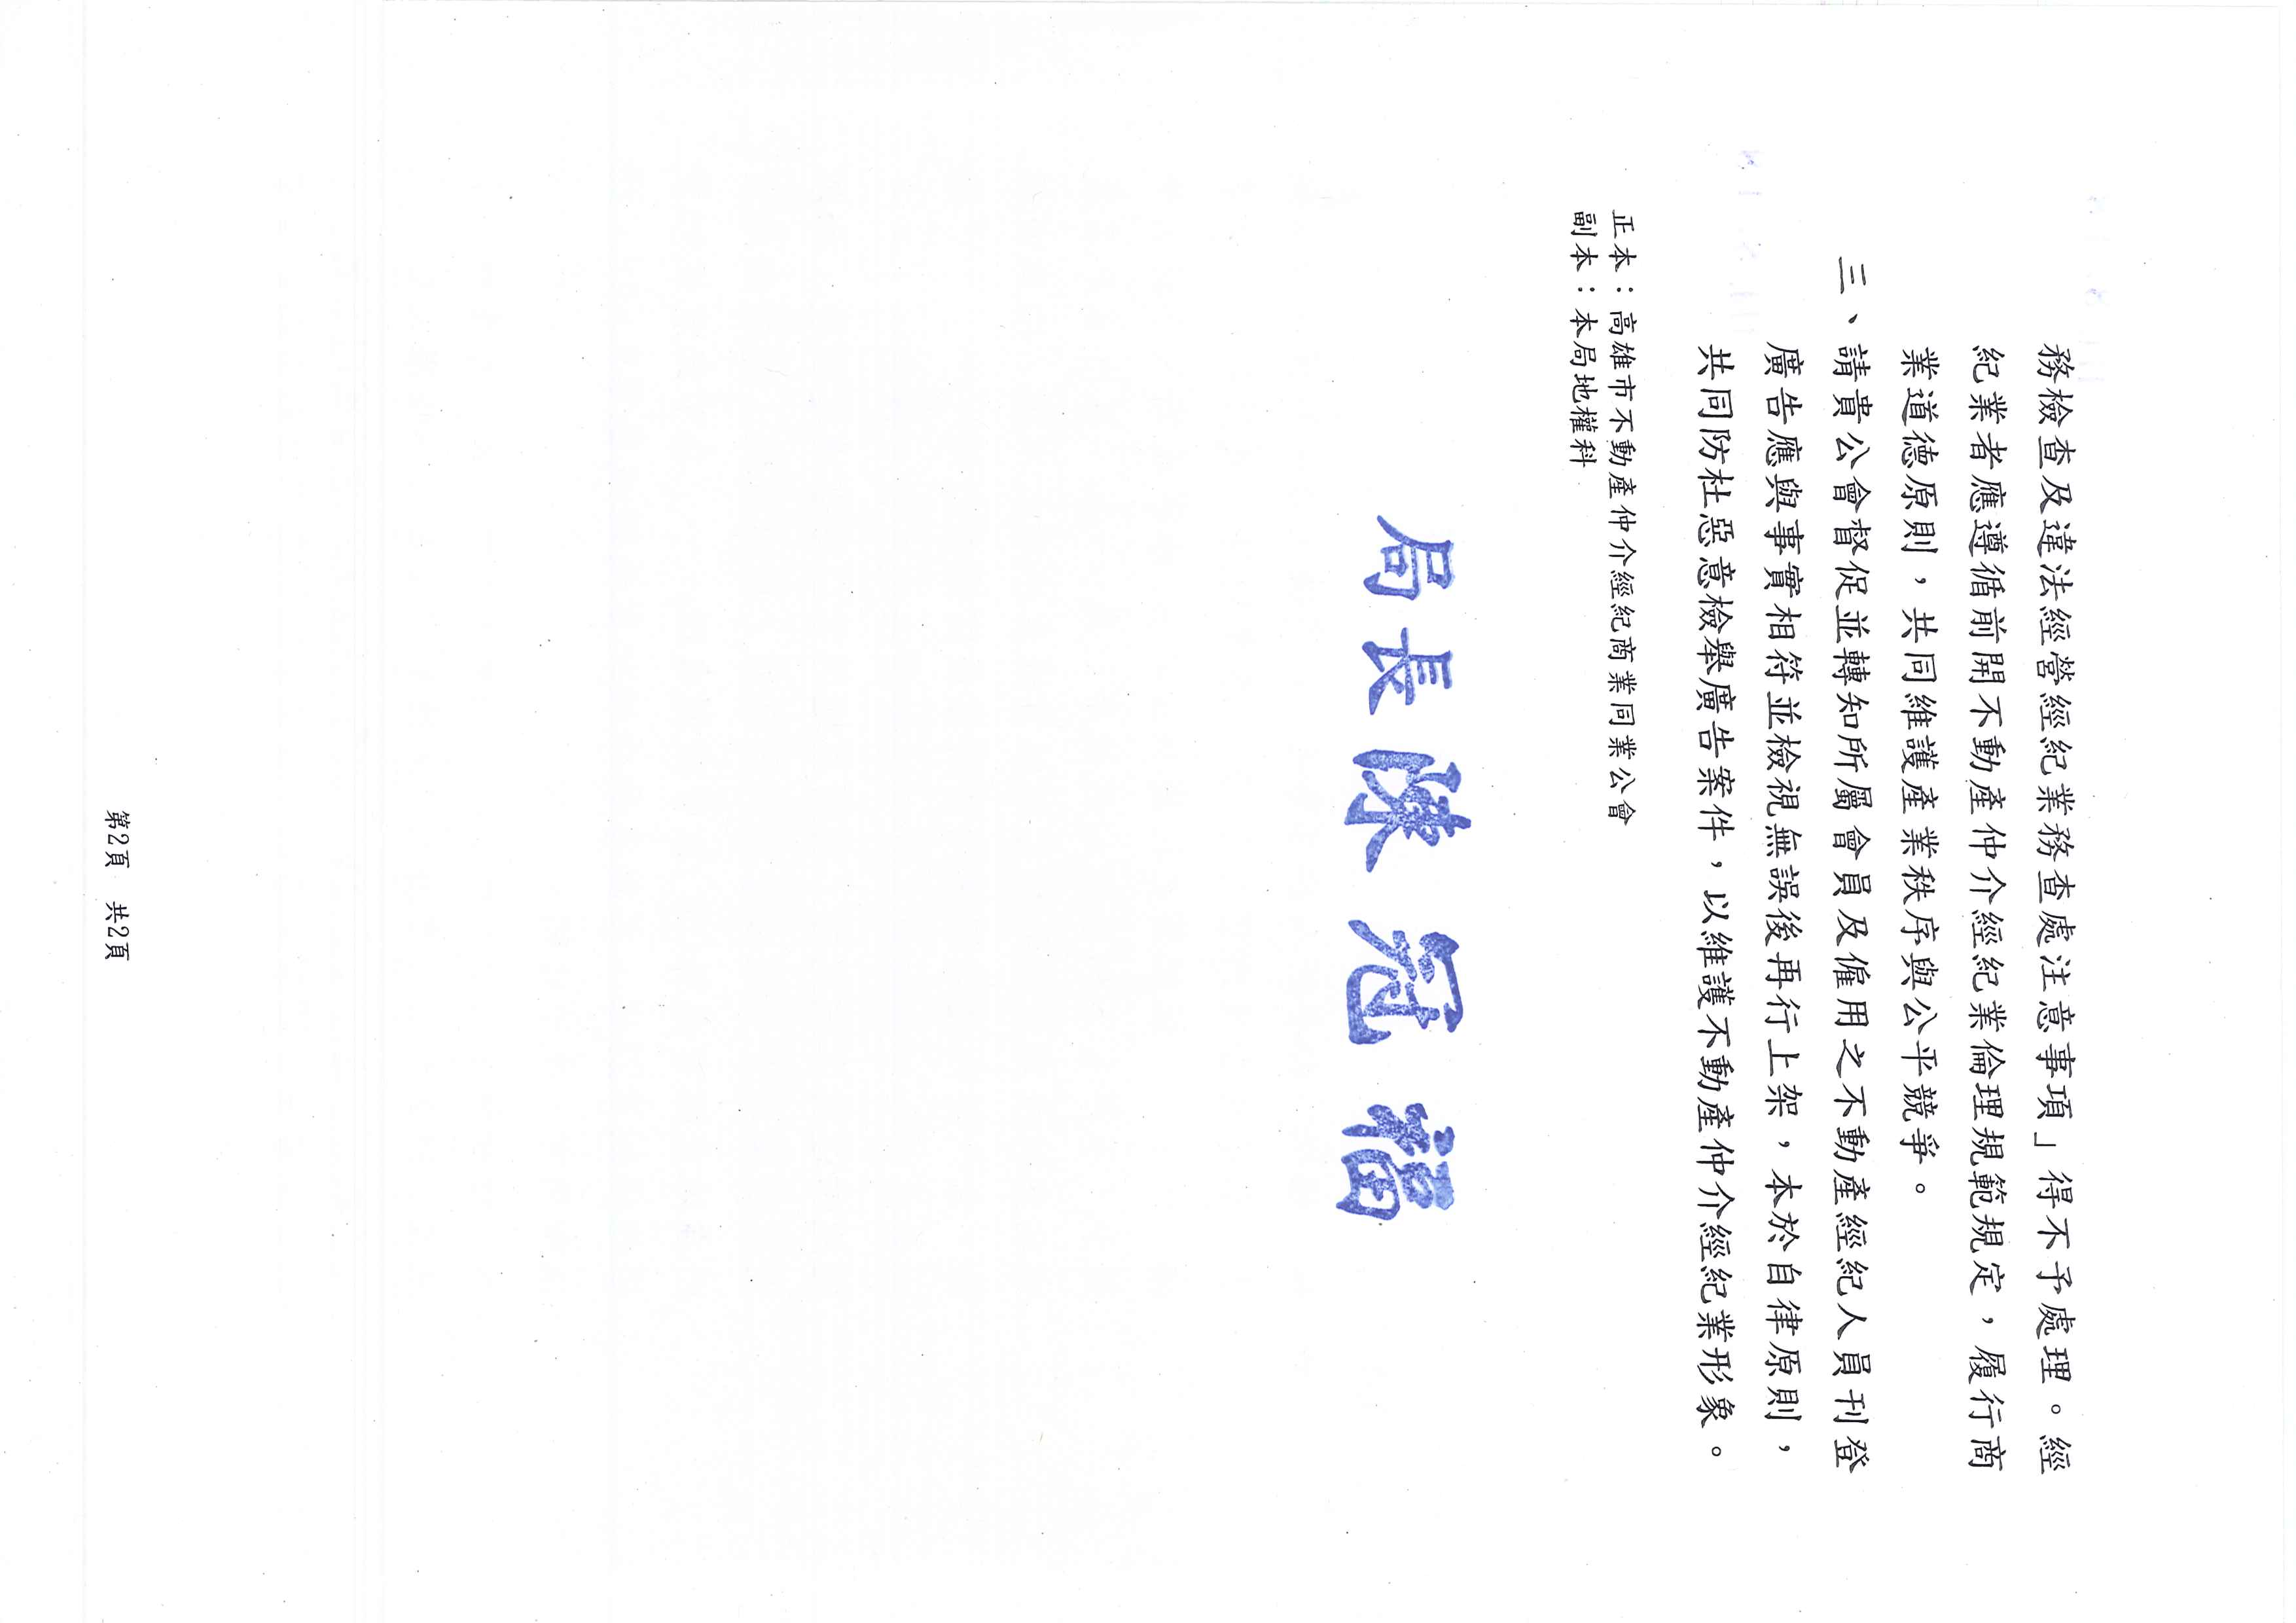 務檢查及違法經營經紀業務查處注意事項」得不予處理。經
紀業者應遵循前開不動產仲介經紀業倫理規範規定，履行商
業道德原則，共同維護產業秩序與公平競爭。
三、請貴公會督促並轉知所屬會員及僱用之不動產經紀人員刊登
廣告應與事實相符並檢視無誤後再行上架，本於自律原則，
共同防杜惡意檢舉廣告案件，以維護不動產仲介經紀業形象。
正本：高雄市不動產仲介經紀商業同業公會
副本：本局地權科
局長陳冠福
第2頁 共2頁